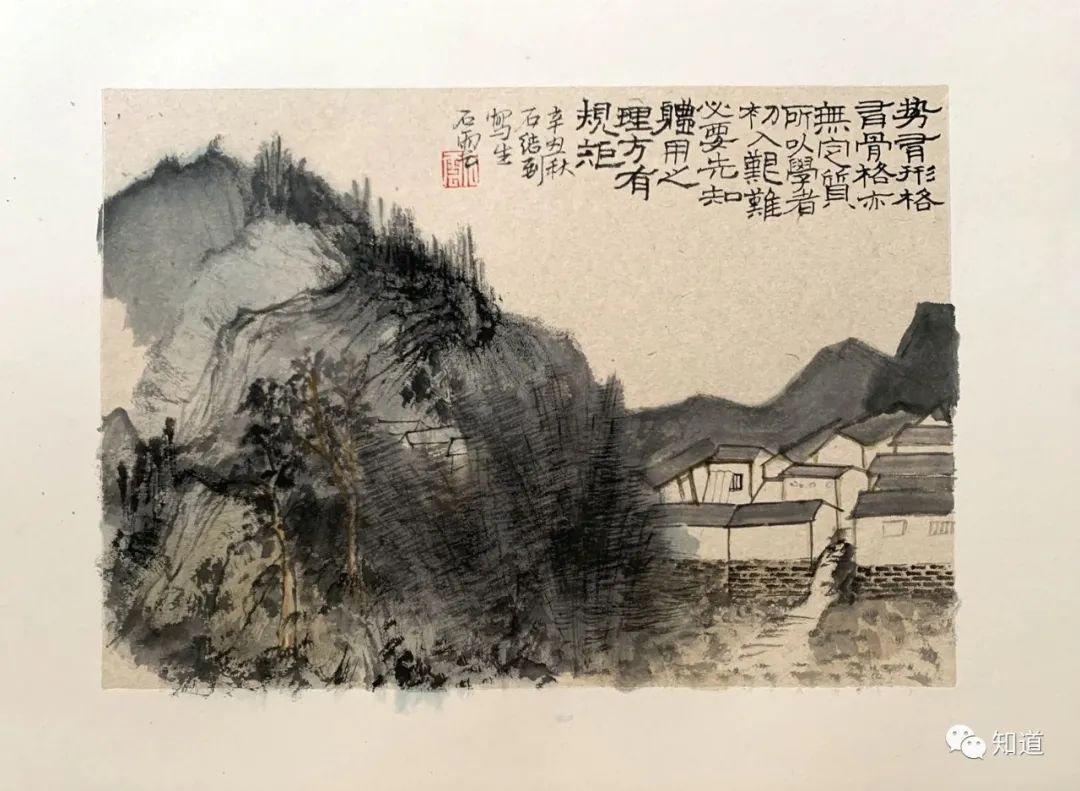 势有形格
有骨格亦
無定質
所以學者
初入艱難
必要先知
體用之
理方有
規矩
辛丑秋
石结刻
寫生
石雨
知道